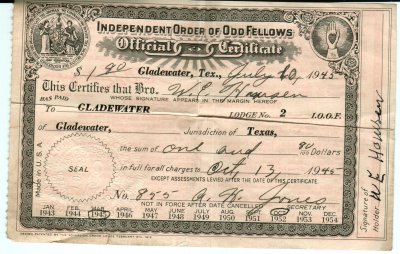 INDEPENDENT ORDER OF ODD FELLOWS
Official Certificate
$ 1.80 Gladewater, Tex., July 10, 1945
This Certifies that Bro. W. E. Hansen
WHOSE SIGNATURE APPEARS IN THE MARGIN HEREOF
HAS PAID
To GLADEWATER LODGE No. 2 I.O.O.F.
of Gladewater, Jurisdiction of Texas,
the sum of one and 80/100 Dollars
in full for all charges to Oct 13, 1945
EXCEPT ASSESSMENTS LEVIED AFTER THE DATE OF THIS CERTIFICATE.
No. 855
Jones
SECRETARY
NOT IN FORCE AFTER DATE CANCELLED
JAN. FEB. MAR. APR. MAY JUNE JULY AUG. SEPT. OCT. NOV. DEC.
1943 1944 1945 1946 1947 1948 1949 1950 1951 1952 1953 1954
SEAL
Made in U.S.A.
Signature of Holder